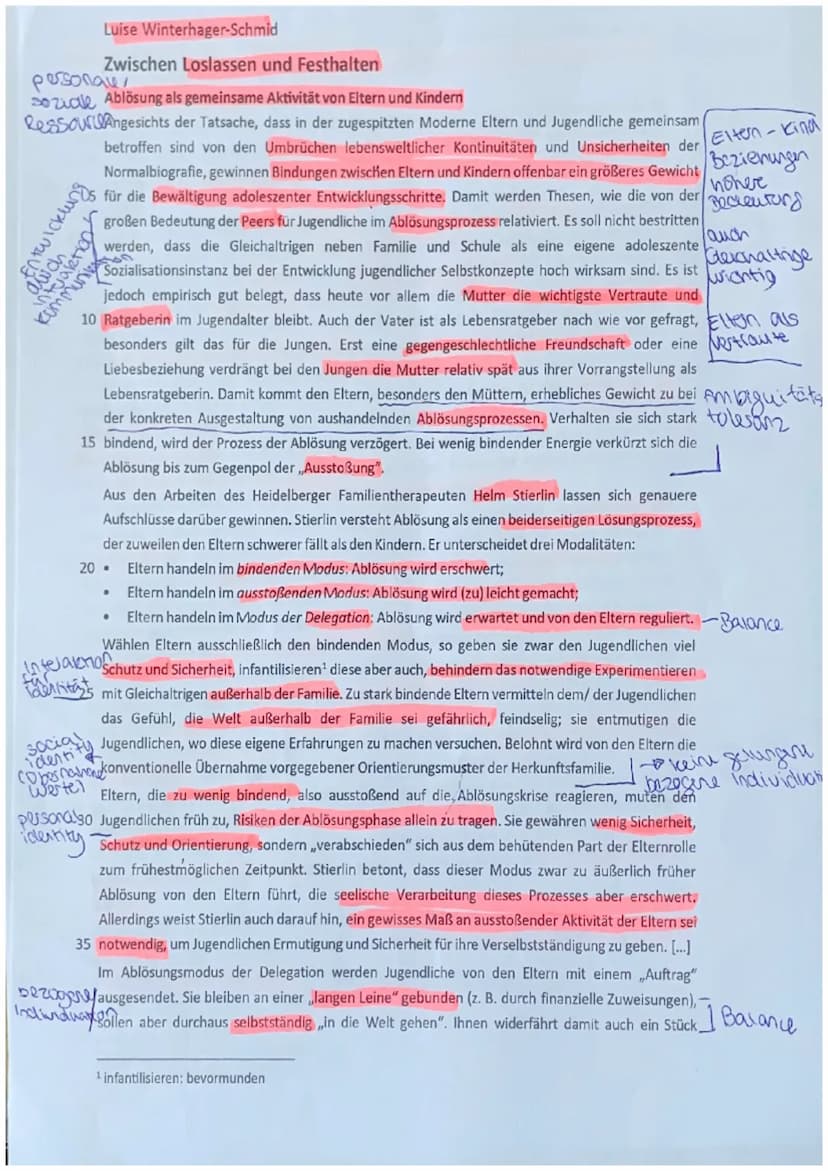 Luise Winterhager-Schmid
Zwischen Loslassen und Festhalten
personale,
soziale
Ressource
Ablösung als gemeinsame Aktivität von Eltern und Kindern
Angesichts der Tatsache, dass in der zugespitzten Moderne Eltern und Jugendliche gemeinsam
betroffen sind von den Umbrüchen lebensweltlicher Kontinuitäten und Unsicherheiten der
Normalbiografie, gewinnen Bindungen zwischen Eltern und Kindern offenbar ein größeres Gewicht
05 für die Bewältigung adoleszenter Entwicklungsschritte. Damit werden Thesen, wie die von der
großen Bedeutung der Peers für Jugendliche im Ablösungsprozess relativiert. Es soll nicht bestritten
werden, dass die Gleichaltrigen neben Familie und Schule als eine eigene adoleszente
Sozialisationsinstanz bei der Entwicklung jugendlicher Selbstkonzepte hoch wirksam sind. Es ist
jedoch empirisch gut belegt, dass heute vor allem die Mutter die wichtigste Vertraute und
10 Ratgeberin im Jugendalter bleibt. Auch der Vater ist als Lebensratgeber nach wie vor gefragt,
besonders gilt das für die Jungen. Erst eine gegengeschlechtliche Freundschaft oder eine
Liebesbeziehung verdrängt bei den Jungen die Mutter relativ spät aus ihrer Vorrangstellung als
Lebensratgeberin. Damit kommt den Eltern, besonders den Müttern, erhebliches Gewicht zu bei
der konkreten Ausgestaltung von aushandelnden Ablösungsprozessen. Verhalten sie sich stark
15 bindend, wird der Prozess der Ablösung verzögert. Bei wenig bindender Energie verkürzt sich die
Ablösung bis zum Gegenpol der „Ausstoßung“.
Entwicklung
durch
Interaktion +
Kommunikation
Eltern-Kind
Beziehungen
höhere
Bedeutung
auch
Gleichaltrige
wichtig
Eltern als
Vertraute
Ambiguitäts
toleranz
Aus den Arbeiten des Heidelberger Familientherapeuten Helm Stierlin lassen sich genauere
Aufschlüsse darüber gewinnen. Stierlin versteht Ablösung als einen beiderseitigen Lösungsprozess,
der zuweilen den Eltern schwerer fällt als den Kindern. Er unterscheidet drei Modalitäten:
20 • Eltern handeln im bindenden Modus: Ablösung wird erschwert;
• Eltern handeln im ausstoßenden Modus: Ablösung wird (zu) leicht gemacht;
• Eltern handeln im Modus der Delegation: Ablösung wird erwartet und von den Eltern reguliert.
Balance
Wählen Eltern ausschließlich den bindenden Modus, so geben sie zwar den Jugendlichen viel
Schutz und Sicherheit, infantilisieren¹ diese aber auch, behindern das notwendige Experimentieren
25 mit Gleichaltrigen außerhalb der Familie. Zu stark bindende Eltern vermitteln dem/ der Jugendlichen
das Gefühl, die Welt außerhalb der Familie sei gefährlich, feindselig; sie entmutigen die
Jugendlichen, wo diese eigene Erfahrungen zu machen versuchen. Belohnt wird von den Eltern die
konventionelle Übernahme vorgegebener Orientierungsmuster der Herkunftsfamilie.
Interaktion
für
Identität
social
identity
Werte)
keine gelungene
bezogene Individuat
Eltern, die zu wenig bindend, also ausstoßend auf die Ablösungskrise reagieren, muten den
30 Jugendlichen früh zu, Risiken der Ablösungsphase allein zu tragen. Sie gewähren wenig Sicherheit,
Schutz und Orientierung, sondern „verabschieden“ sich aus dem behütenden Part der Elternrolle
zum frühestmöglichen Zeitpunkt. Stierlin betont, dass dieser Modus zwar zu äußerlich früher
Ablösung von den Eltern führt, die seelische Verarbeitung dieses Prozesses aber erschwert.
Allerdings weist Stierlin auch darauf hin, ein gewisses Maß an ausstoßender Aktivität der Eltern sei
35 notwendig, um Jugendlichen Ermutigung und Sicherheit für ihre Verselbstständigung zu geben. [...]
personal
identity
Im Ablösungsmodus der Delegation werden Jugendliche von den Eltern mit einem „Auftrag“
ausgesendet. Sie bleiben an einer „langen Leine“ gebunden (z. B. durch finanzielle Zuweisungen),
sollen aber durchaus selbstständig „in die Welt gehen“. Ihnen widerfährt damit auch ein Stück
bezogene
Individuation
Balance
¹ infantilisieren: bevormunden